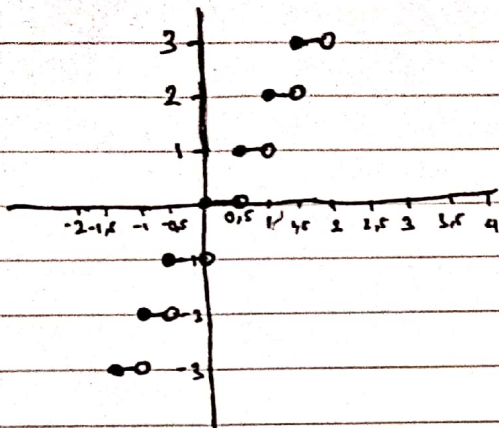 3
2
1
-2 -1,5 -1 -0,5 0,5 1 1,5 2 2,5 3 3,5 4
-1
-2
-3